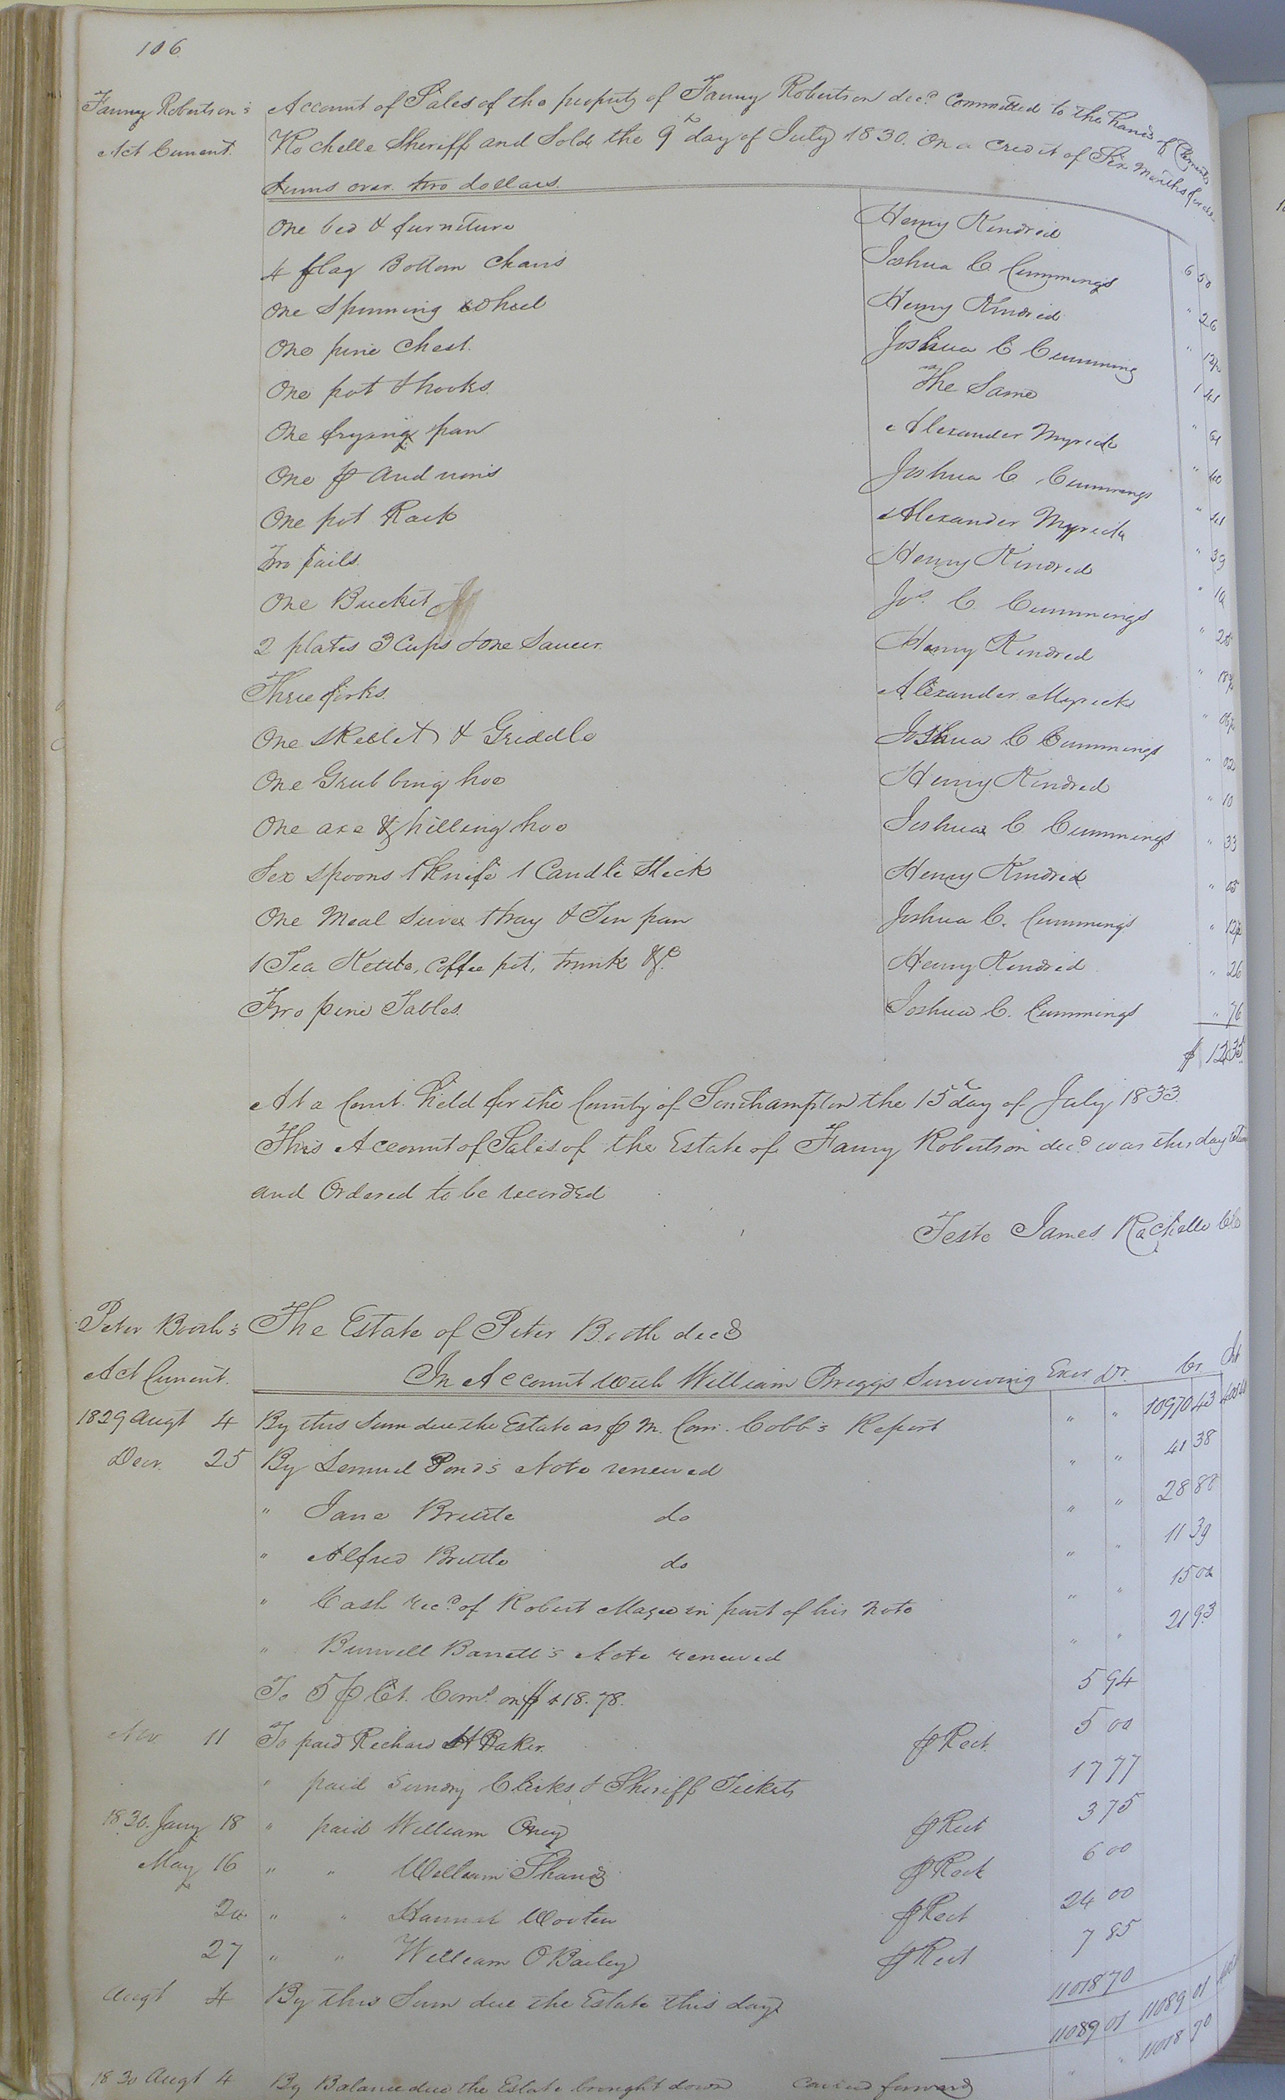 106
Fanny Robertson's Account of Sales of the property of Fanny Robertson decd. Committed to the hands of Clements
Act Current. Rochelle Sheriff and Sold the 9th day of July 1830. On a Credit of Six months for all
Sums over two dollars.
One bed & furniture Henry Kindred 6 50
4 flag Bottom Chairs Joshua C Cummings " 26
One Spinning Wheel Henry Kindred " 12½
One pine Chest. Joshua C Cumming 1
One pot & hooks. The Same "
One frying pan Alexander Myrick " 40
One p Andirons Joshua C Cummings "
One pot Rack Alexander Myrick " 39
Two pails. Henry Kindred "
One Bucket Jos. C Cummings "
2 plates 3 Cups & One Saucer. Henry Kindred " 18¾
Three forks. Alexander Myrick " 06¼
One Skellet & Griddle Joshua C Cummings " 02
One Grubbing hoe Henry Kindred " 10
One axe & hilling hoe Joshua C Cummings " 33
Six Spoons 1 Knife 1 Candle Stick Henry Kindred " 05
One Meal Seive 1 tray & Tin pan Joshua C. Cummings " 12½
1 Tea Kettle, Coffee pot, trunk &c. Henry Kindred " 26
Two pine Tables. Joshua C. Cummings " 76
$ 12 35
At a Court Held for the County of Southampton the 15th day of July 1833.
This Account of Sales of the Estate of Fanny Robertson decd. was this day
and Ordered to be recorded
Teste James Rochelle Clk
Peter Booth's The Estate of Peter Booth decd
Act Current. In Account with William Briggs Surviving Exor Dr. Cr
1829 Augt 4 By this Sum due the Estate as p M. Com. Cobb's Report " " 10970 43
Decr. 25 By Lemuel Pond's Note renewed " " 41 38
" Jane Brittle do " " 28 88
" Alfred Brittle do " " 11 39
" Cash recd. of Robert Magee in part of his note " " 15 00
" Burwell Barrett's Note renewed " " 21 93
To 5 p Ct. Coms. on $118.78. 5 94
Nov 11 To paid Richard H Baker. p Rect. 5 00
" paid Sundry Clerks & Sheriff Tickets 17 77
1830. Jany 18 " paid William Oney p Rect 3 75
May 16 " " William Shands p Rect 6 00
20 " " Hannah Wooten p Rect 24 00
27 " " William O Bailey p Rect 7 85
Augt 4 By this Sum due the Estate this day 11018 70
11089 01 11089 01
1830 Augt 4 By Balance due the Estate brought down carried forward " " 11018 70